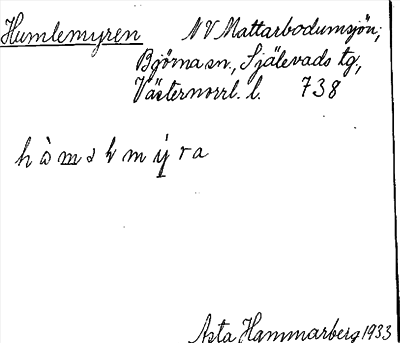 Humlemyren NV Mattarbodumsjön,
Björna sn., Själevads tg,
Västernorrl. l. 738
h ò m ə l m ý r a
Asta Hammarberg 1933